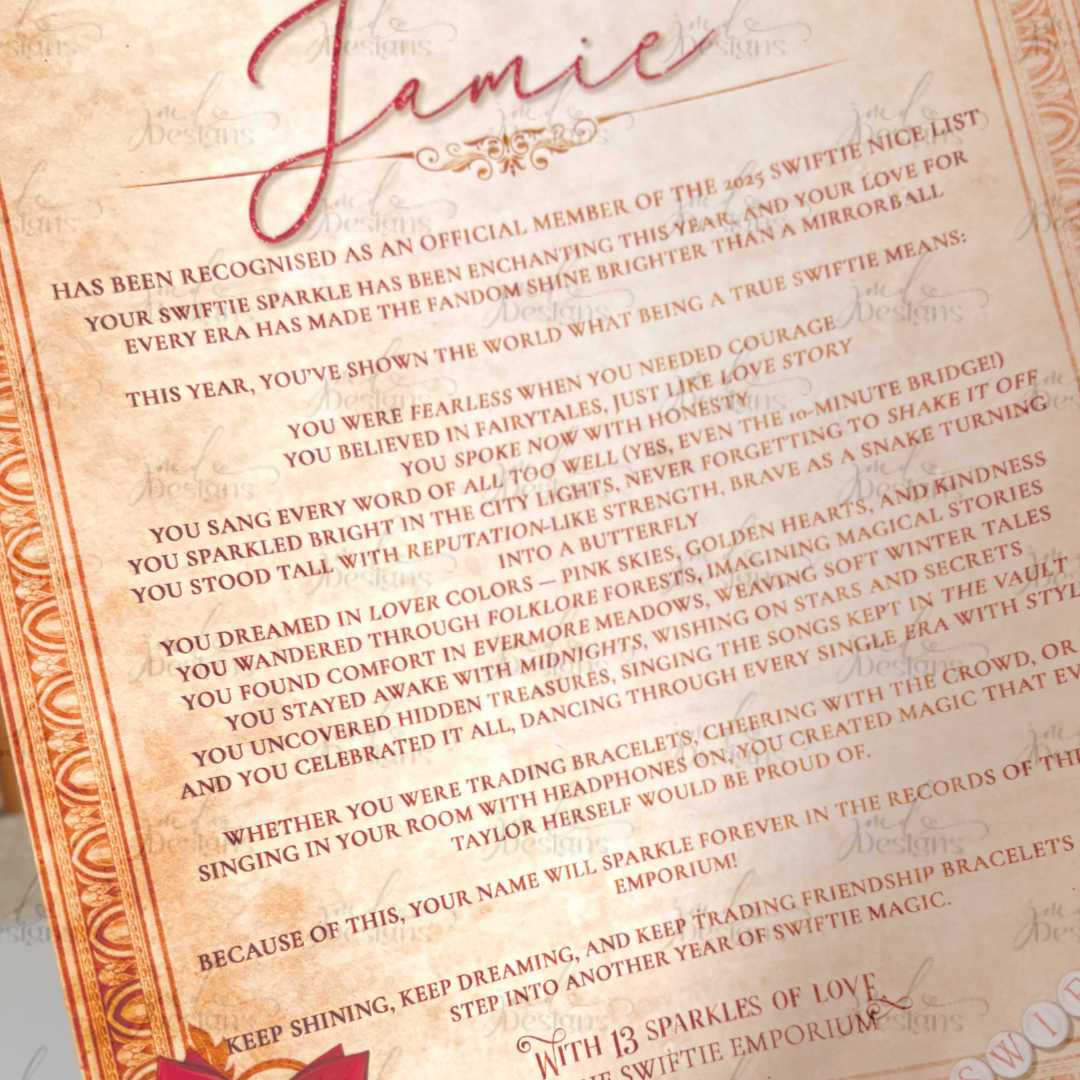 Jamie
HAS BEEN RECOGNISED AS AN OFFICIAL MEMBER OF THE 2025 SWIFTIE NICE LIST
YOUR SWIFTIE SPARKLE HAS BEEN ENCHANTING THIS YEAR, AND YOUR LOVE FOR
EVERY ERA HAS MADE THE FANDOM SHINE BRIGHTER THAN A MIRRORBALL
THIS YEAR, YOU'VE SHOWN THE WORLD WHAT BEING A TRUE SWIFTIE MEANS:
YOU WERE FEARLESS WHEN YOU NEEDED COURAGE
YOU BELIEVED IN FAIRYTALES, JUST LIKE LOVE STORY
YOU SPOKE NOW WITH HONESTY
YOU SANG EVERY WORD OF ALL TOO WELL (YES, EVEN THE 10-MINUTE BRIDGE!)
YOU SPARKLED BRIGHT IN THE CITY LIGHTS, NEVER FORGETTING TO SHAKE IT OFF
YOU STOOD TALL WITH REPUTATION-LIKE STRENGTH, BRAVE AS A SNAKE TURNING
INTO A BUTTERFLY
YOU DREAMED IN LOVER COLORS — PINK SKIES, GOLDEN HEARTS, AND KINDNESS
YOU WANDERED THROUGH FOLKLORE FORESTS, IMAGINING MAGICAL STORIES
YOU FOUND COMFORT IN EVERMORE MEADOWS, WEAVING SOFT WINTER TALES
YOU STAYED AWAKE WITH MIDNIGHTS, WISHING ON STARS AND SECRETS
YOU UNCOVERED HIDDEN TREASURES, SINGING THE SONGS KEPT IN THE VAULT
AND YOU CELEBRATED IT ALL, DANCING THROUGH EVERY SINGLE ERA WITH STYL
WHETHER YOU WERE TRADING BRACELETS, CHEERING WITH THE CROWD, OR
SINGING IN YOUR ROOM WITH HEADPHONES ON, YOU CREATED MAGIC THAT EV
TAYLOR HERSELF WOULD BE PROUD OF.
BECAUSE OF THIS, YOUR NAME WILL SPARKLE FOREVER IN THE RECORDS OF THE
EMPORIUM!
KEEP SHINING, KEEP DREAMING, AND KEEP TRADING FRIENDSHIP BRACELETS
STEP INTO ANOTHER YEAR OF SWIFTIE MAGIC.
WITH 13 SPARKLES OF LOVE
THE SWIFTIE EMPORIUM
SWIF
jmdo Designs